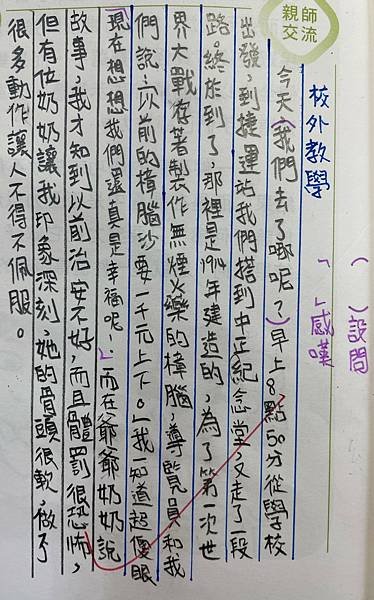 親師
交流
( )設問
「 」感嘆
校外教學
今天(我們去了哪呢?)早上8點50分從學校
出發,到捷運站我們搭到中正紀念堂,又走了一段
路。終於到了,那裡是1914年建造的,為了第一次世
界大戰存著製作無煙火藥的樟腦,導覽員和我
們說:以前的樟腦沙要一千元上下。」我一知道超傻眼
「現在想想我們還真是幸福呢!」而在爺爺奶奶說
故事,我才知到以前治安不好,而且體罰很恐怖,
但有位奶奶讓我印象深刻,她的骨頭很軟,做了
很多動作讓人不得不佩服。